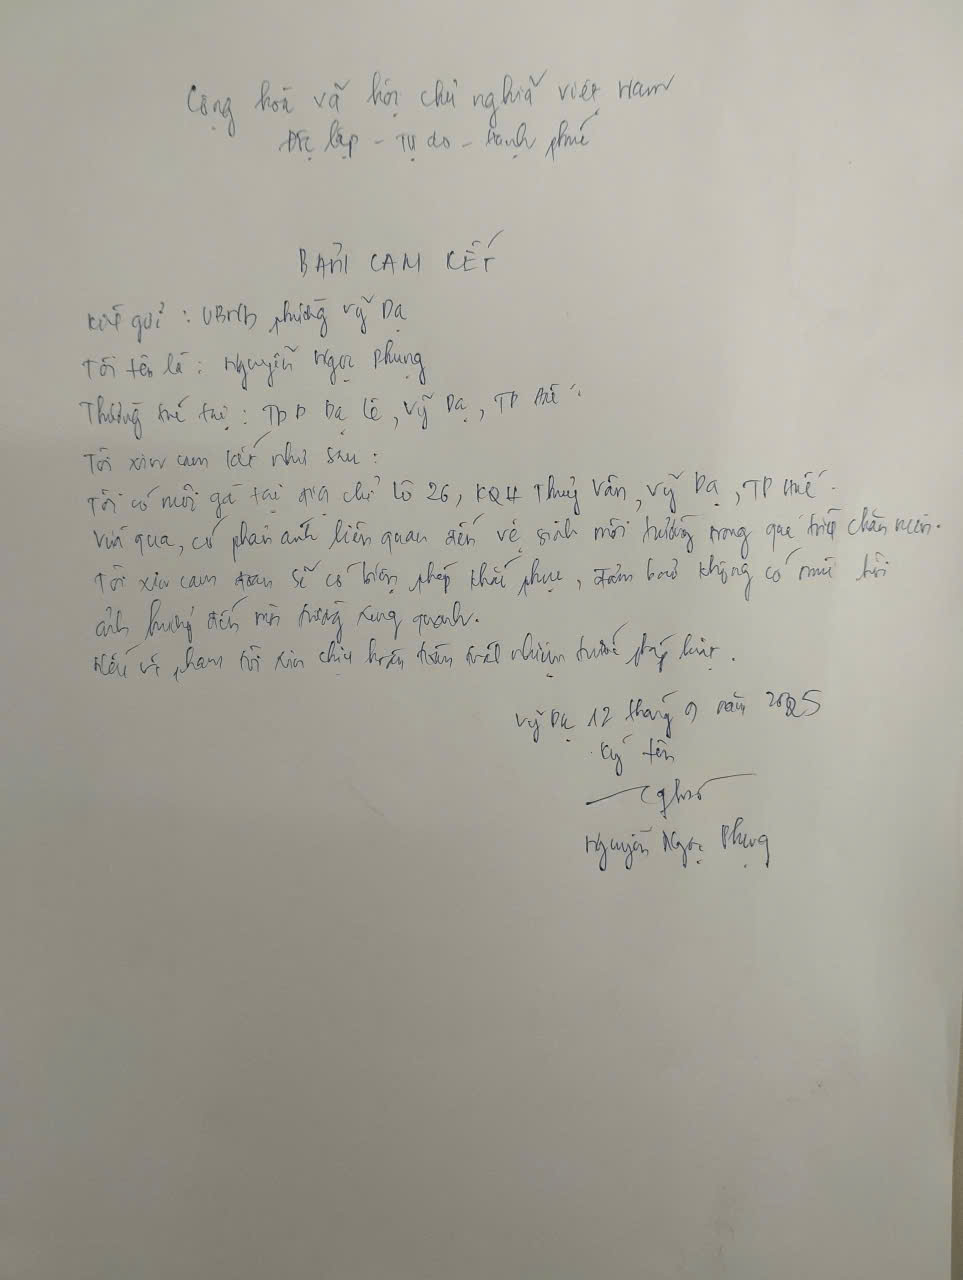 Cộng hoà xã hội chủ nghĩa Việt Nam
Độc lập - Tự do - Hạnh phúc
BẢN CAM KẾT
Kính gửi : UBND phường Vỹ Dạ
Tôi tên là : Nguyễn Ngọc Phụng
Thường trú tại : TDP Dạ Lê, Vỹ Dạ, TP Huế.
Tôi xin cam kết như sau :
Tôi có nuôi gà tại địa chỉ lô 26, KQH Thuỷ Vân, Vỹ Dạ, TP Huế.
Vừa qua, có phản ánh liên quan đến vệ sinh môi trường trong quá trình chăn nuôi.
Tôi xin cam đoan sẽ có biện pháp khắc phục, đảm bảo không có mùi hôi
ảnh hưởng đến môi trường xung quanh.
Nếu vi phạm tôi xin chịu hoàn toàn trách nhiệm trước pháp luật.
Vỹ Dạ 12 tháng 9 năm 2025
Ký tên
Nguyễn Ngọc Phụng